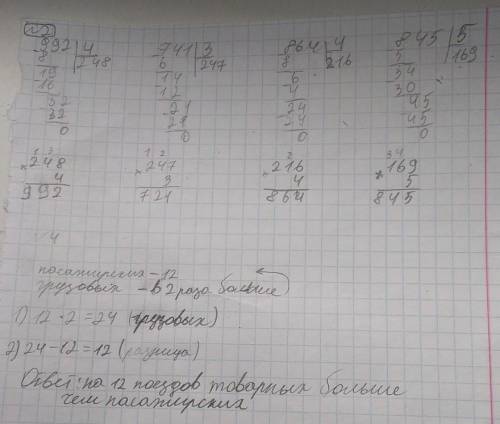 №2
992 | 4 741 | 3 864 | 4 845 | 5
8 248 6 247 8 216 5 169
19 14 6 34
16 12 4 30
32 21 24 45
32 21 24 45
0 0 0 0
1 3 1 2 2 3 4
×248 ×247 ×216 ×169
4 3 4 5
992 721 864 845
4
пасажирских – 12
грузовых – в 2 раза больше
1) 12 · 2 = 24 (грузовых)
2) 24 – 12 = 12 (разница)
Ответ: на 12 поездов товарных больше
чем пасажирских